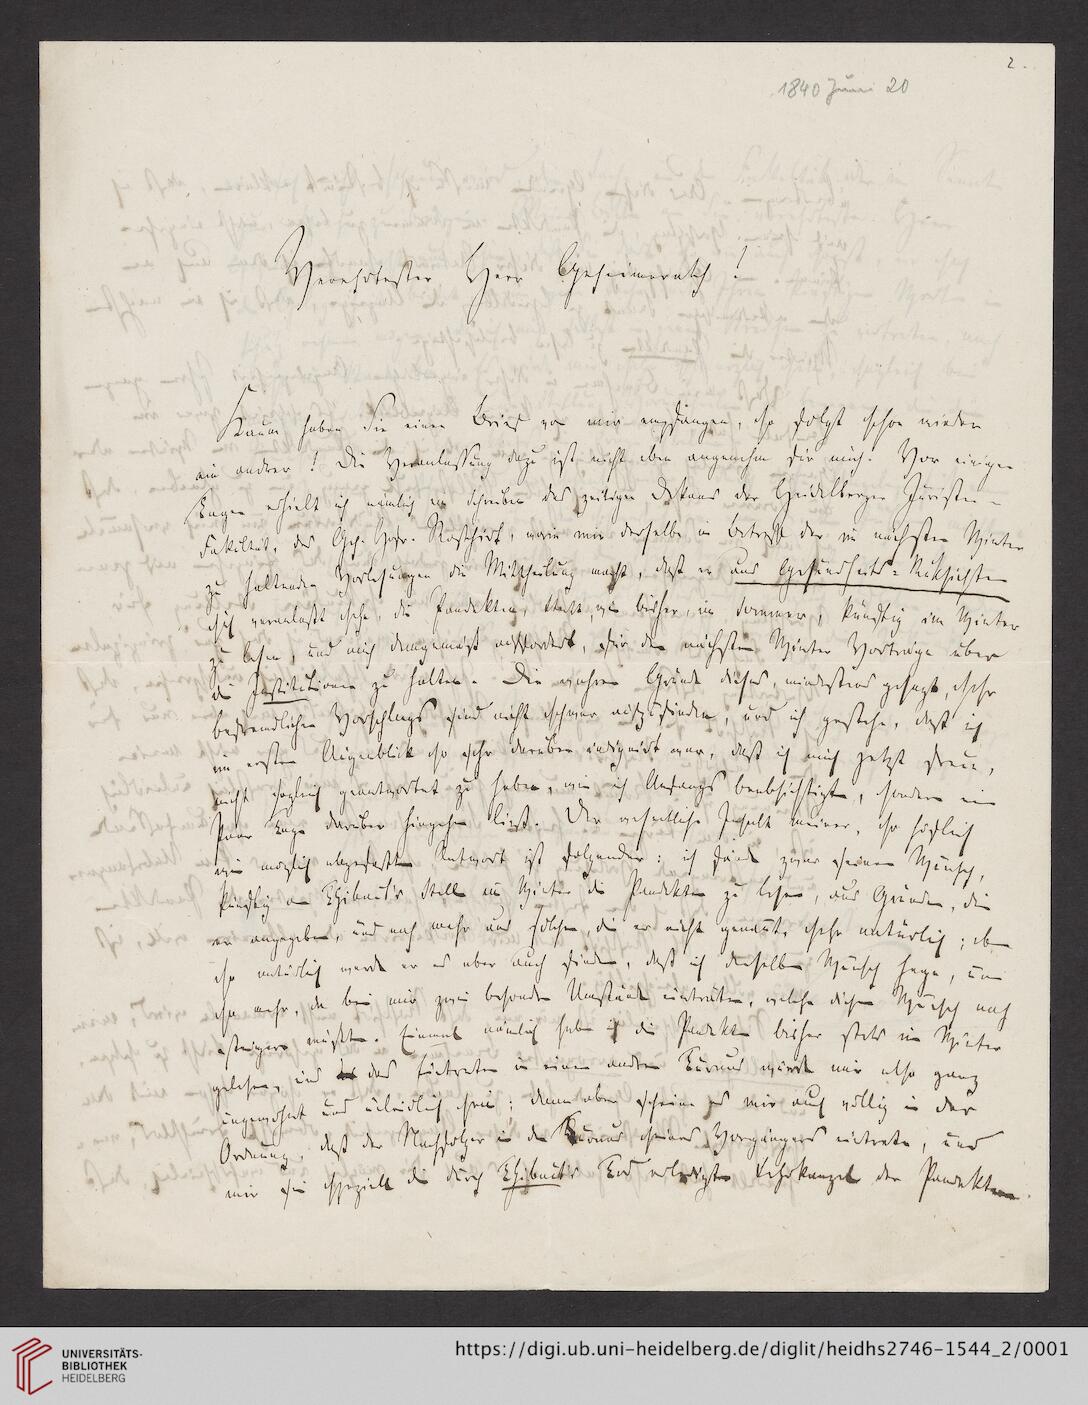 2.
1840 Juni 20
Verehrtester Herr Geheimerath!
Kaum haben Sie einen Brief von mir empfangen, so folgt schon wieder
ein andrer! Die Veranlassung dazu ist nicht eben angenehm für mich. Vor einigen
Tagen erhielt ich nämlich ein Schreiben des zeitigen Dekans der Heidelberger Juristen-
Fakultät, des Geh. Hofr. Roßhirt, worin mir derselbe in Betreff der im nächsten Winter
zu haltenden Vorlesungen die Mittheilung macht, daß er aus Gesundheits-Rüksichten
sich veranlaßt sehe, die Pandekten, statt, wie bisher, im Sommer, künftig im Winter
zu lesen, und mich demgemäß auffordert, für den nächsten Winter Vorträge über
die Institutionen zu halten. Die wahren Gründe dieses, mindestens gesagt, sehr
befremdlichen Vorschlags sind nicht schwer aufzufinden, und ich gestehe, daß ich
im ersten Augenblick so sehr darüber indignirt war, daß ich mich jetzt freue,
nicht sogleich geantwortet zu haben, wie ich Anfangs beabsichtigte, sondern ein
Paar Tage darüber hingehen ließ. Der wesentliche Inhalt meiner, so höflich
wie möglich abgefaßten Antwort ist folgender: ich fände zwar seinen Wunsch,
künftig an Thibaut's Stelle im Winter die Pandekten zu lesen, aus Gründen, die
er angegeben, und noch mehr aus solchen, die er nicht genannt, sehr natürlich; eben
so natürlich werde er es aber auch finden, daß ich denselben Wunsch hege, um
so mehr, da bei mir zwei besondere Umstände einträten, welche diesen Wunsch noch
steigern müßten. Einmal nämlich habe ich die Pandekten bisher stets im Winter
gelesen, und das Eintreten in einen andern Turnus würde mir also ganz
ungewohnt und unleidlich sein; dann aber scheine es mir auch völlig in der
Ordnung, daß der Nachfolger in den Turnus seines Vorgängers eintrete, und
mir sei speziell die durch Thibaut's Tod erledigte Lehrkanzel der Pandekten
UNIVERSITÄTS-
BIBLIOTHEK
HEIDELBERG
https://digi.ub.uni-heidelberg.de/diglit/heidhs2746-1544_2/0001